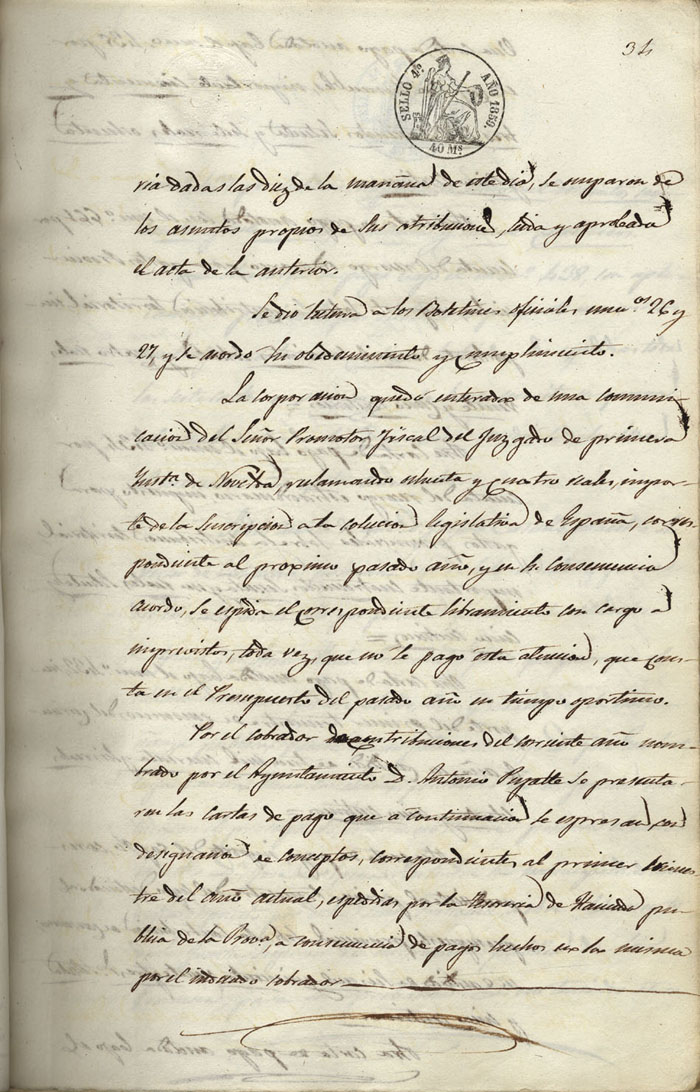 34
SELLO 4º AÑO 1859.
40 Ms
ria dadas las diez de la mañana de este dia, se ocuparon de
los asuntos propios de sus atribuciones, leida y aprobada
el acta de la anterior.
Se dio lectura a los Boletines oficiales numos 26 y
27, y se acordo su obedecimiento y cumplimiento.
La corporacion quedó enterada de una communi-
cacion del Señor Promotor fiscal del Juzgado de primera
Insta. de Novelda, reclamando ochenta y cuatro reales, impor-
te de la suscripcion a la colecion legislativa de España, corres-
pondiente al proximo pasado año, y en su consecuencia
acordo, se espida el correspondiente libramiento con cargo a
imprevistos, toda vez, que no se pago esta atencion, que cons-
ta en el Presupuesto del pasado año en tiempo oportuno.
Por el cobrador de contribuciones del corriente año nom-
brado por el Ayuntamiento D. Antonio Pujalte se presenta-
ron las cartas de pago que a continuacion se espresan, con
designacion de conceptos, correspondientes al primer trimes-
tre del año actual, espedidas por la Tesoreria de Hacienda pu-
blica de la Prova, a consecuencia de pagos hechos en la misma
por el indicado cobrador